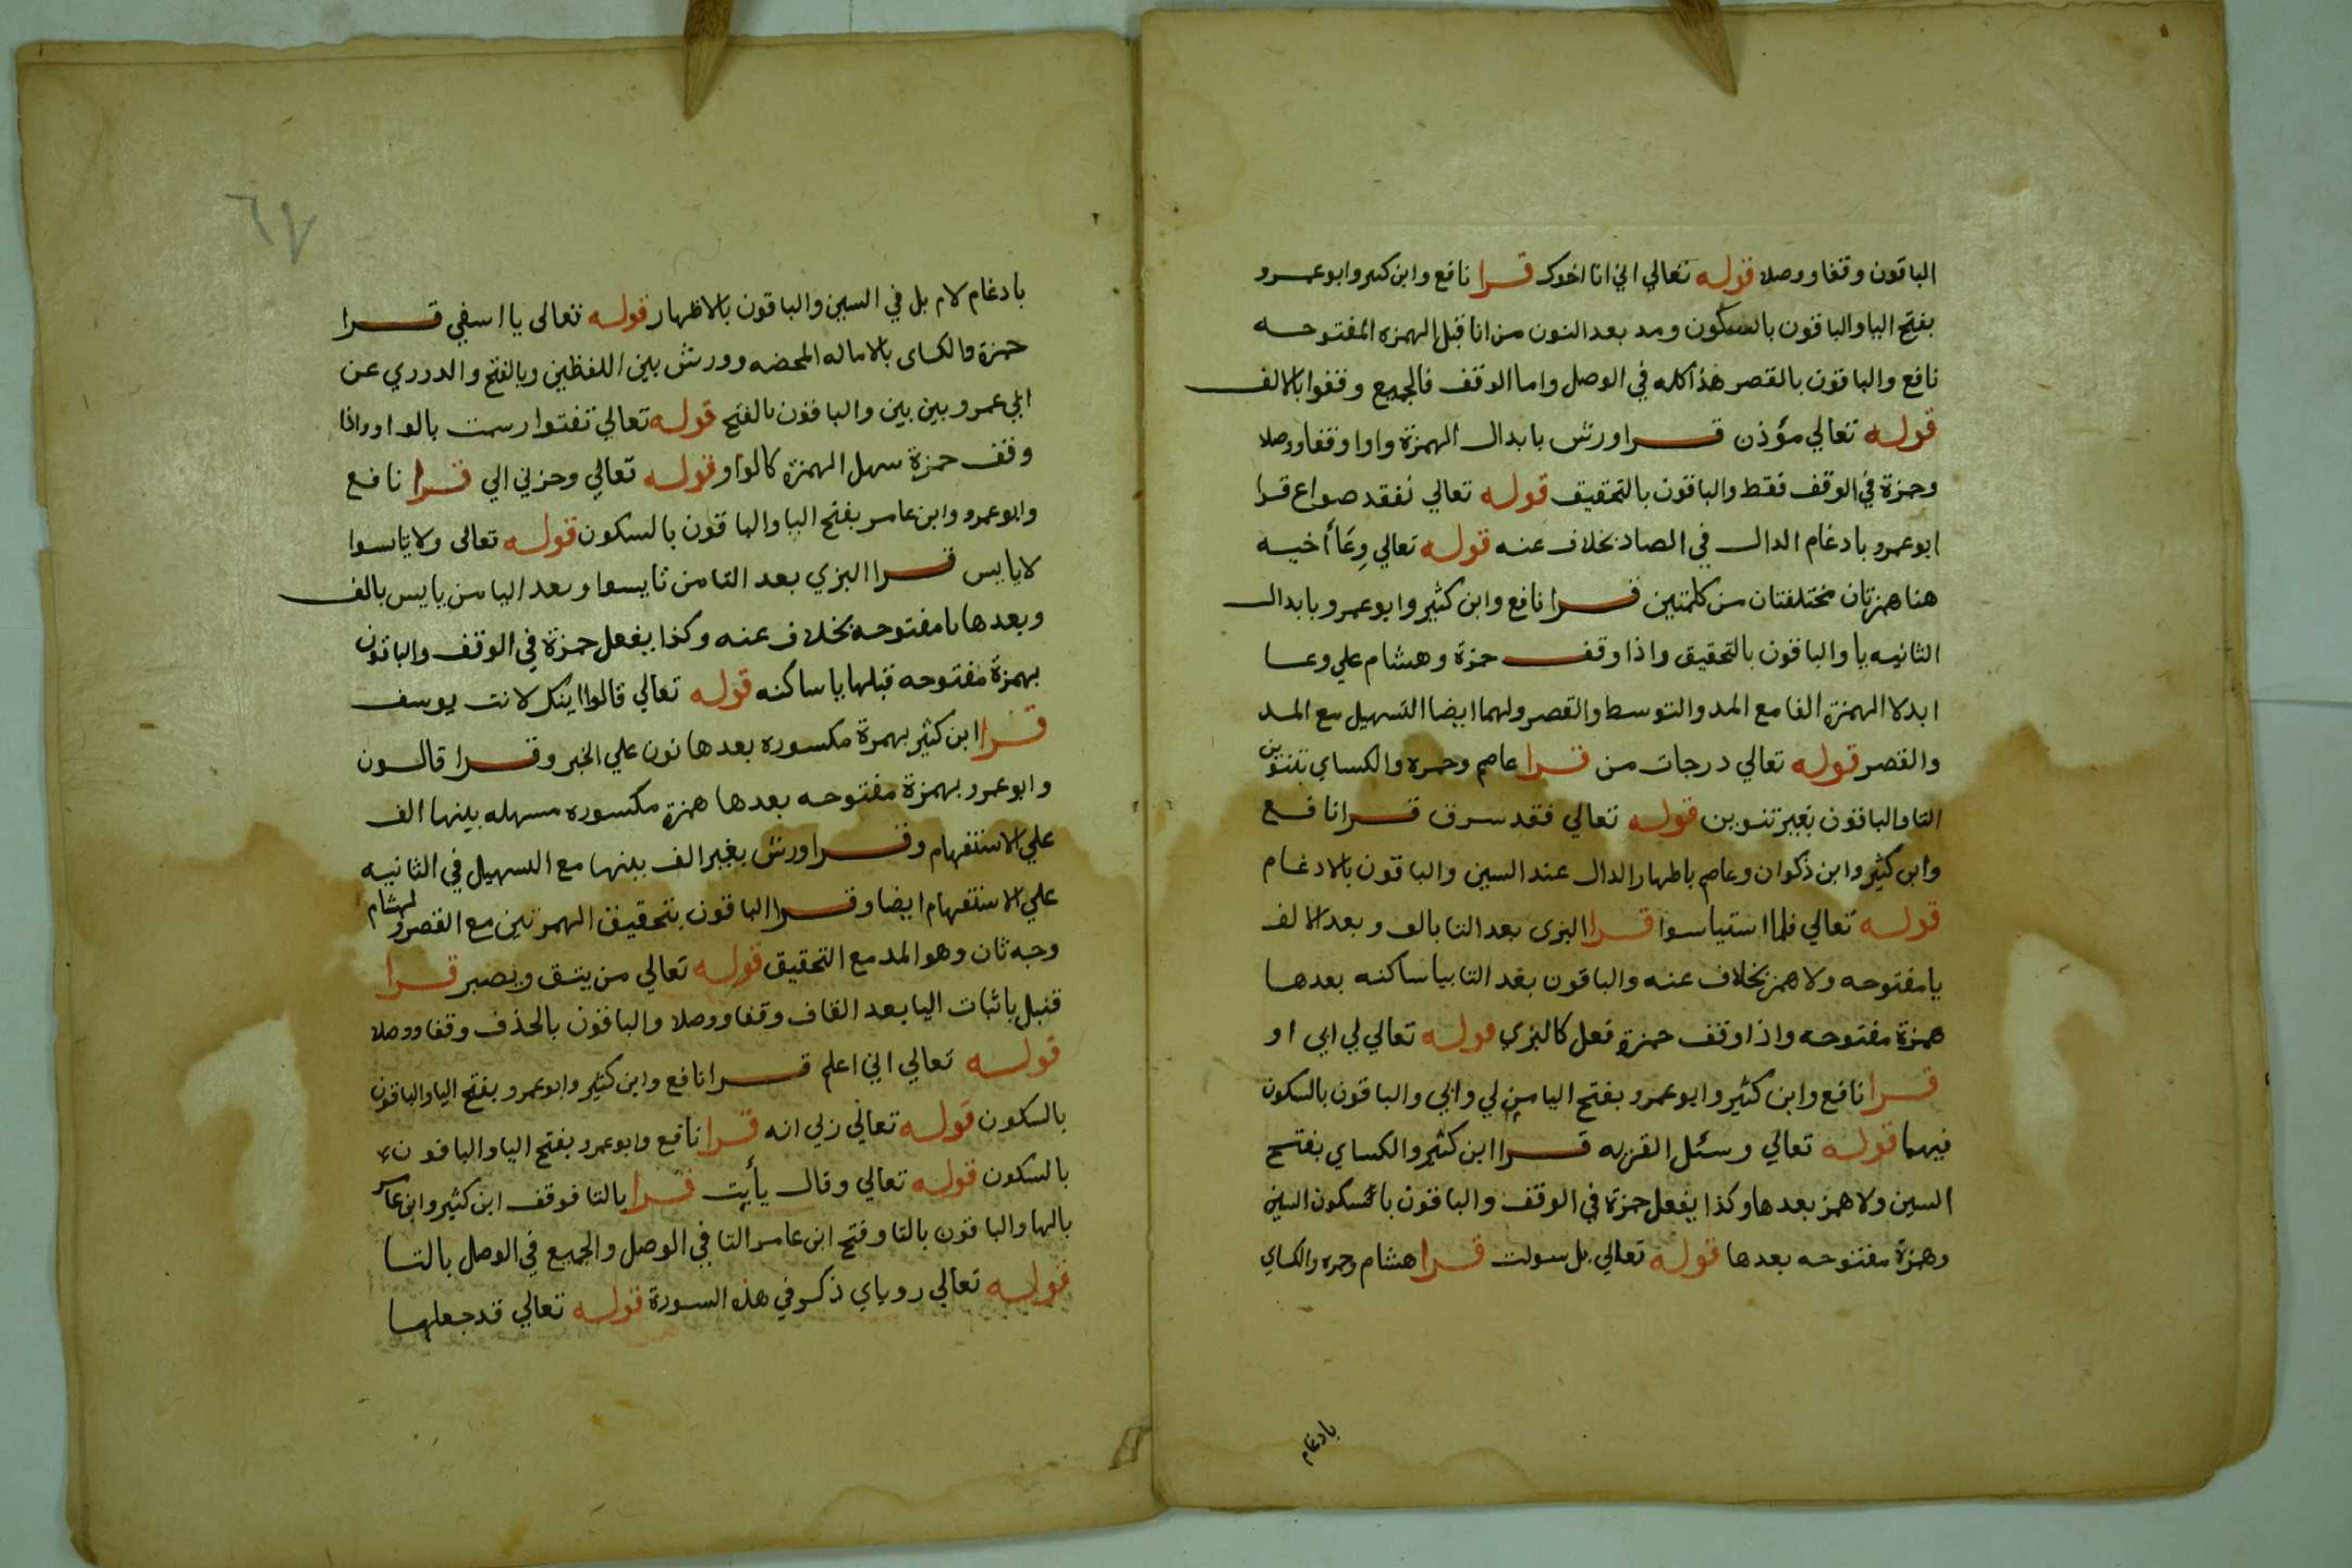 الباقون وقفا ووصلا قوله تعالي اني انا اخوك قرا نافع وابن كثير وابو عمرو
بفتح اليا والباقون بالسكون ومد بعد النون من انا قبل الهمزه المفتوحه
نافع والباقون بالقصر هذا كله في الوصل واما الوقف فالجميع وقفوا بالالف
قوله تعالي مؤذن قرا ورش بابدال الهمزة واوا وقفا ووصلا
وحمزة في الوقف فقط والباقون بالتحقيق قوله تعالي نفقد صواع قرا
ابو عمرو بادغام الدال في الصاد بخلاف عنه قوله تعالي وِعَاأَخيه
هنا همزتان مختلفتان من كلمتين قرا نافع وابن كثير وابو عمرو بابدال
الثانيه يا والباقون بالتحقيق واذا وقف حمزة وهشام علي وعا
ابدلا الهمزة الفا مع المد والتوسط والقصر ولهما ايضا التسهيل مع المد
والقصر قوله تعالي درجات من قرا عاصم وحمزه والكساي بتنوين
التا والباقون بغير تنوين قوله تعالي فقد سرق قرا نافع
وابن كثير وابن ذكوان وعاصم باظهار الدال عند السين والباقون بالادغام
قوله تعالي فلما استياسوا قرا البزي بعد التا بالف وبعد الالف
يا مفتوحه ولا همز بخلاف عنه والباقون بعد التا بيا ساكنه بعدها
همزة مفتوحه واذا وقف حمزة فعل كالبزي قوله تعالي لي ابي او
قرا نافع وابن كثير وابو عمرو بفتح اليا من لي وابي والباقون بالسكون
فيهما قوله تعالي وسئل القريه قرا ابن كثير والكساي بفتح
السين ولا همز بعدها وكذا يفعل حمزة في الوقف والباقون بالسكون السين
وهمزة مفتوحه بعدها قوله تعالي بل سولت قرا هشام وحمزه والكساي
بادغام
٦٧
بادغام لام بل في السين والباقون بالاظهار قوله تعالى يا اسفي قرا
حمزة والكساى بالاماله المحضه وورش بين اللفظين وبالفتح والدوري عن
ابي عمرو بين بين والباقون بالفتح قوله تعالي تفتوا رسمت بالواو واذا
وقف حمزة سهل الهمزة كالواو قوله تعالي وحزني الي قرا نافع
وابو عمرو وابن عامر بفتح اليا والباقون بالسكون قوله تعالى ولا يايسوا
لا يايس قرا البزي بعد التا من تايسوا وبعد اليا من يايس بالف
وبعدها يا مفتوحه بخلاف عنه وكذا يفعل حمزة في الوقف والباقون
بهمزة مفتوحه قبلها يا ساكنه قوله تعالي قالوا اينك لانت يوسف
قرا ابن كثير بهمزة مكسوره بعدها نون علي الخبر وقرا قالون
وابو عمرو بهمزة مفتوحه بعدها همزة مكسوره مسهله بينهما الف
علي الاستفهام وقرا ورش بغير الف بينهما مع التسهيل في الثانيه
علي الاستفهام ايضا وقرا الباقون بتحقيق الهمزتين مع القصر ولهشام
وجه ثان وهو المد مع التحقيق قوله تعالي من يتق ويصبر قرا
قنبل باثبات اليا بعد القاف وقفا ووصلا والباقون بالحذف وقفا ووصلا
قوله تعالي اني اعلم قرا نافع وابن كثير وابو عمرو بفتح اليا والباقون
بالسكون قوله تعالي ربي انه قرا نافع وابو عمرو بفتح اليا والباقون
بالسكون قوله تعالي وقال يأبت قرا بالتا فوقف ابن كثير وابن عامر
بالها والباقون بالتا وفتح ابن عامر التا في الوصل والجميع في الوصل بالتا
قوله تعالي روياي ذكر في هذه السورة قوله تعالي قد جعلها